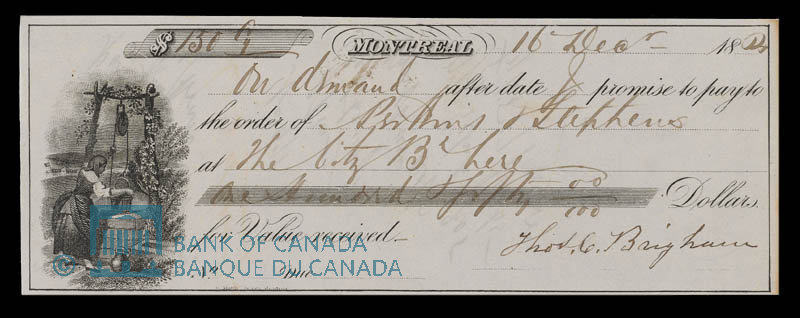 $ 150 MONTREAL 16 Decr 18
On demand after date I promise to pay to
the order of Perkins & Stephens
at The City Bk here
One Hundred & fifty 00/100 Dollars.
for Value received
Thos. C. Brigham
No due
© BANK OF CANADA
BANQUE DU CANADA